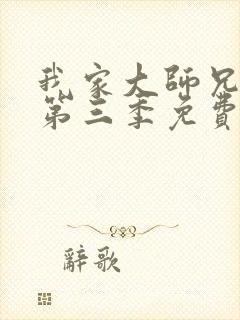 我家大師兄
第三季免費
辭歌